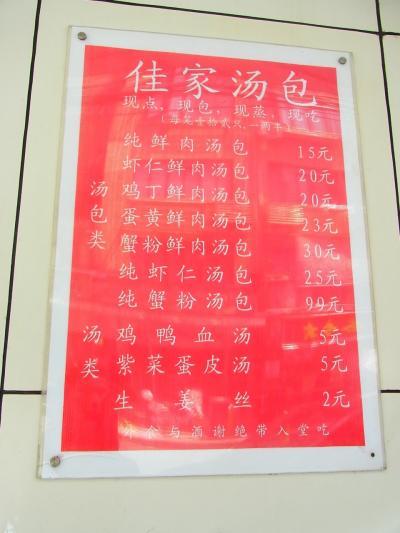 佳家汤包
现点，现包，现蒸，现吃
(每笼壹拾贰只，一两半)
汤包类
纯鲜肉汤包 15元
虾仁鲜肉汤包 20元
鸡丁鲜肉汤包 20元
蛋黄鲜肉汤包 23元
蟹粉鲜肉汤包 30元
纯虾仁汤包 25元
纯蟹粉汤包 99元
汤类
鸡鸭血汤 5元
紫菜蛋皮汤 5元
生姜丝 2元
外食与酒谢绝带入堂吃